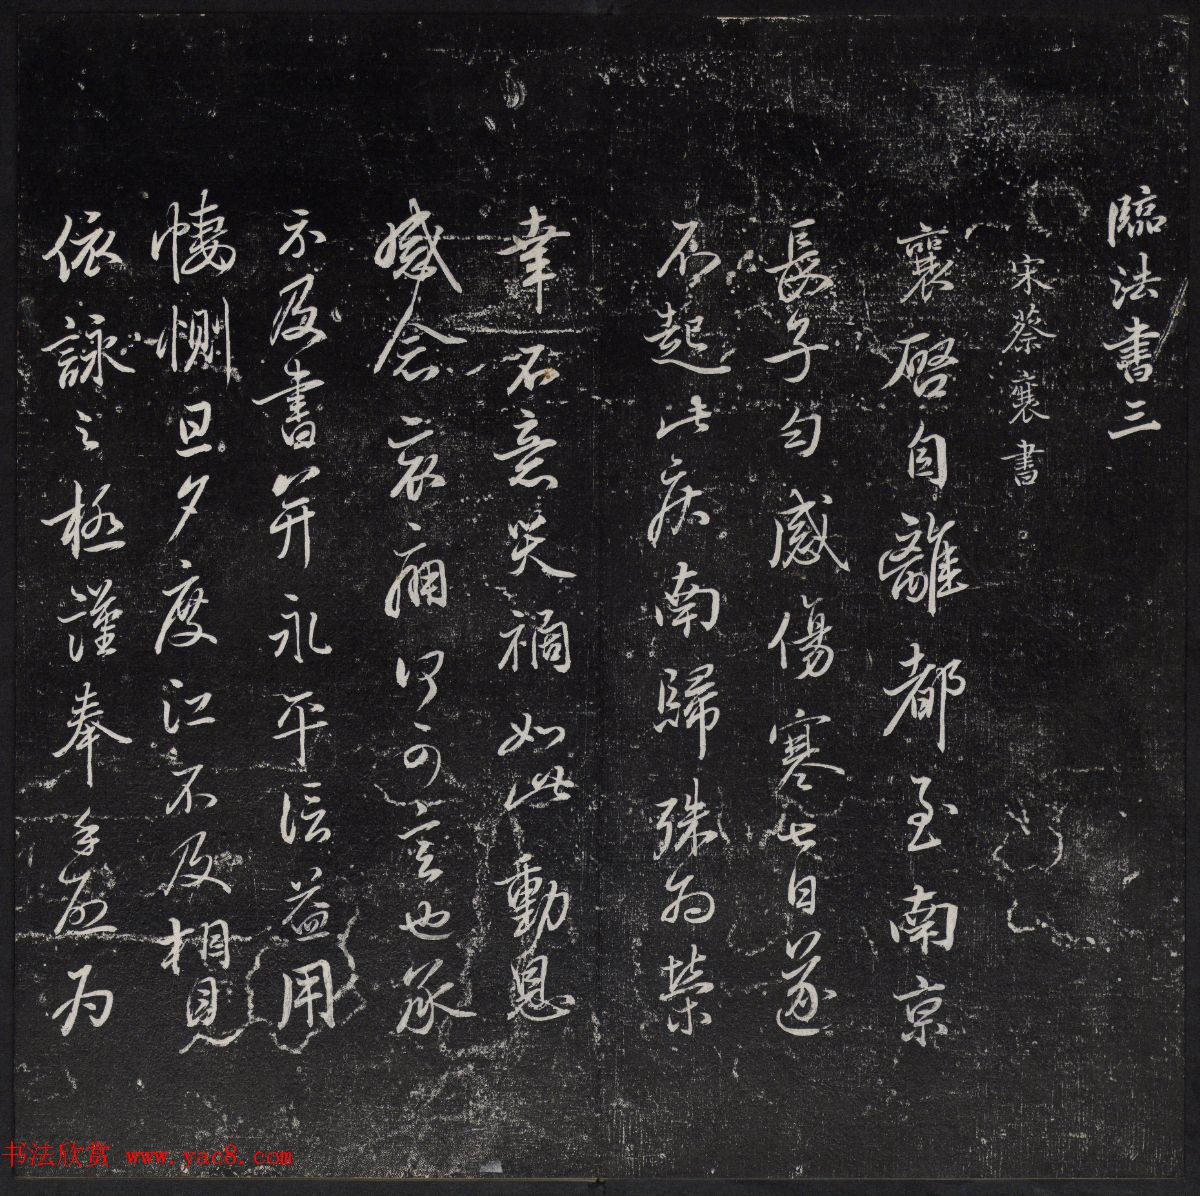 臨法書三
宋蔡襄書
襄啓自離都至南京
長子勻感傷寒七日遂
不起此疾南歸殊為榮
幸不意災禍如此動息
感念哀痛何可言也承
示及書并永平信益用
悽惻旦夕度江不及相見
依詠之極謹奉手啟為
书法欣赏 www.yac8.com